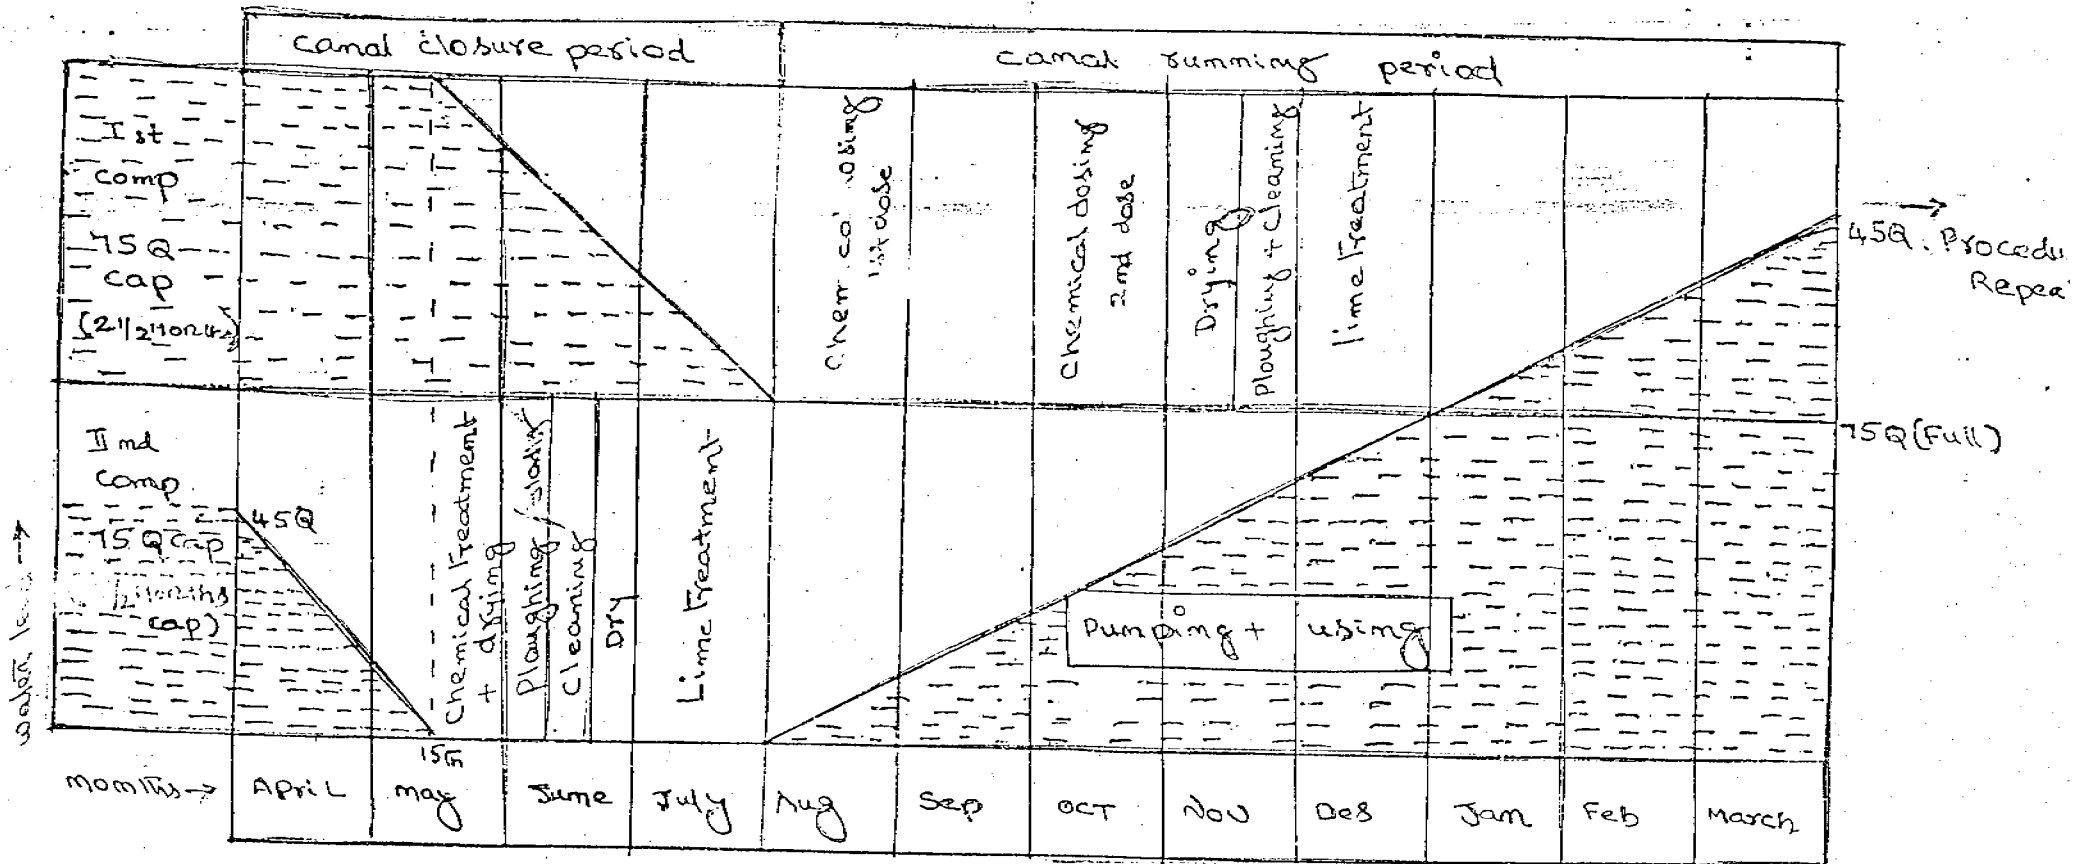 canal closure period
canal running period
I st
comp
75Q
cap
(2 1/2 Months)
II nd
comp
75 Q cap
1/2 Months
cap)
45Q
Chemical Treatment
+ drying
Ploughing
Cleaning
Dry
Lime Treatment
1st dose
Chemical dosing
2nd dose
Drying
Ploughing + Cleaning
lime Treatment
Pumping + using
45Q. Procedu
Repea
75Q (Full)
15th
months →
April
may
June
July
Aug
Sep
OCT
Nov
Des
Jan
Feb
March